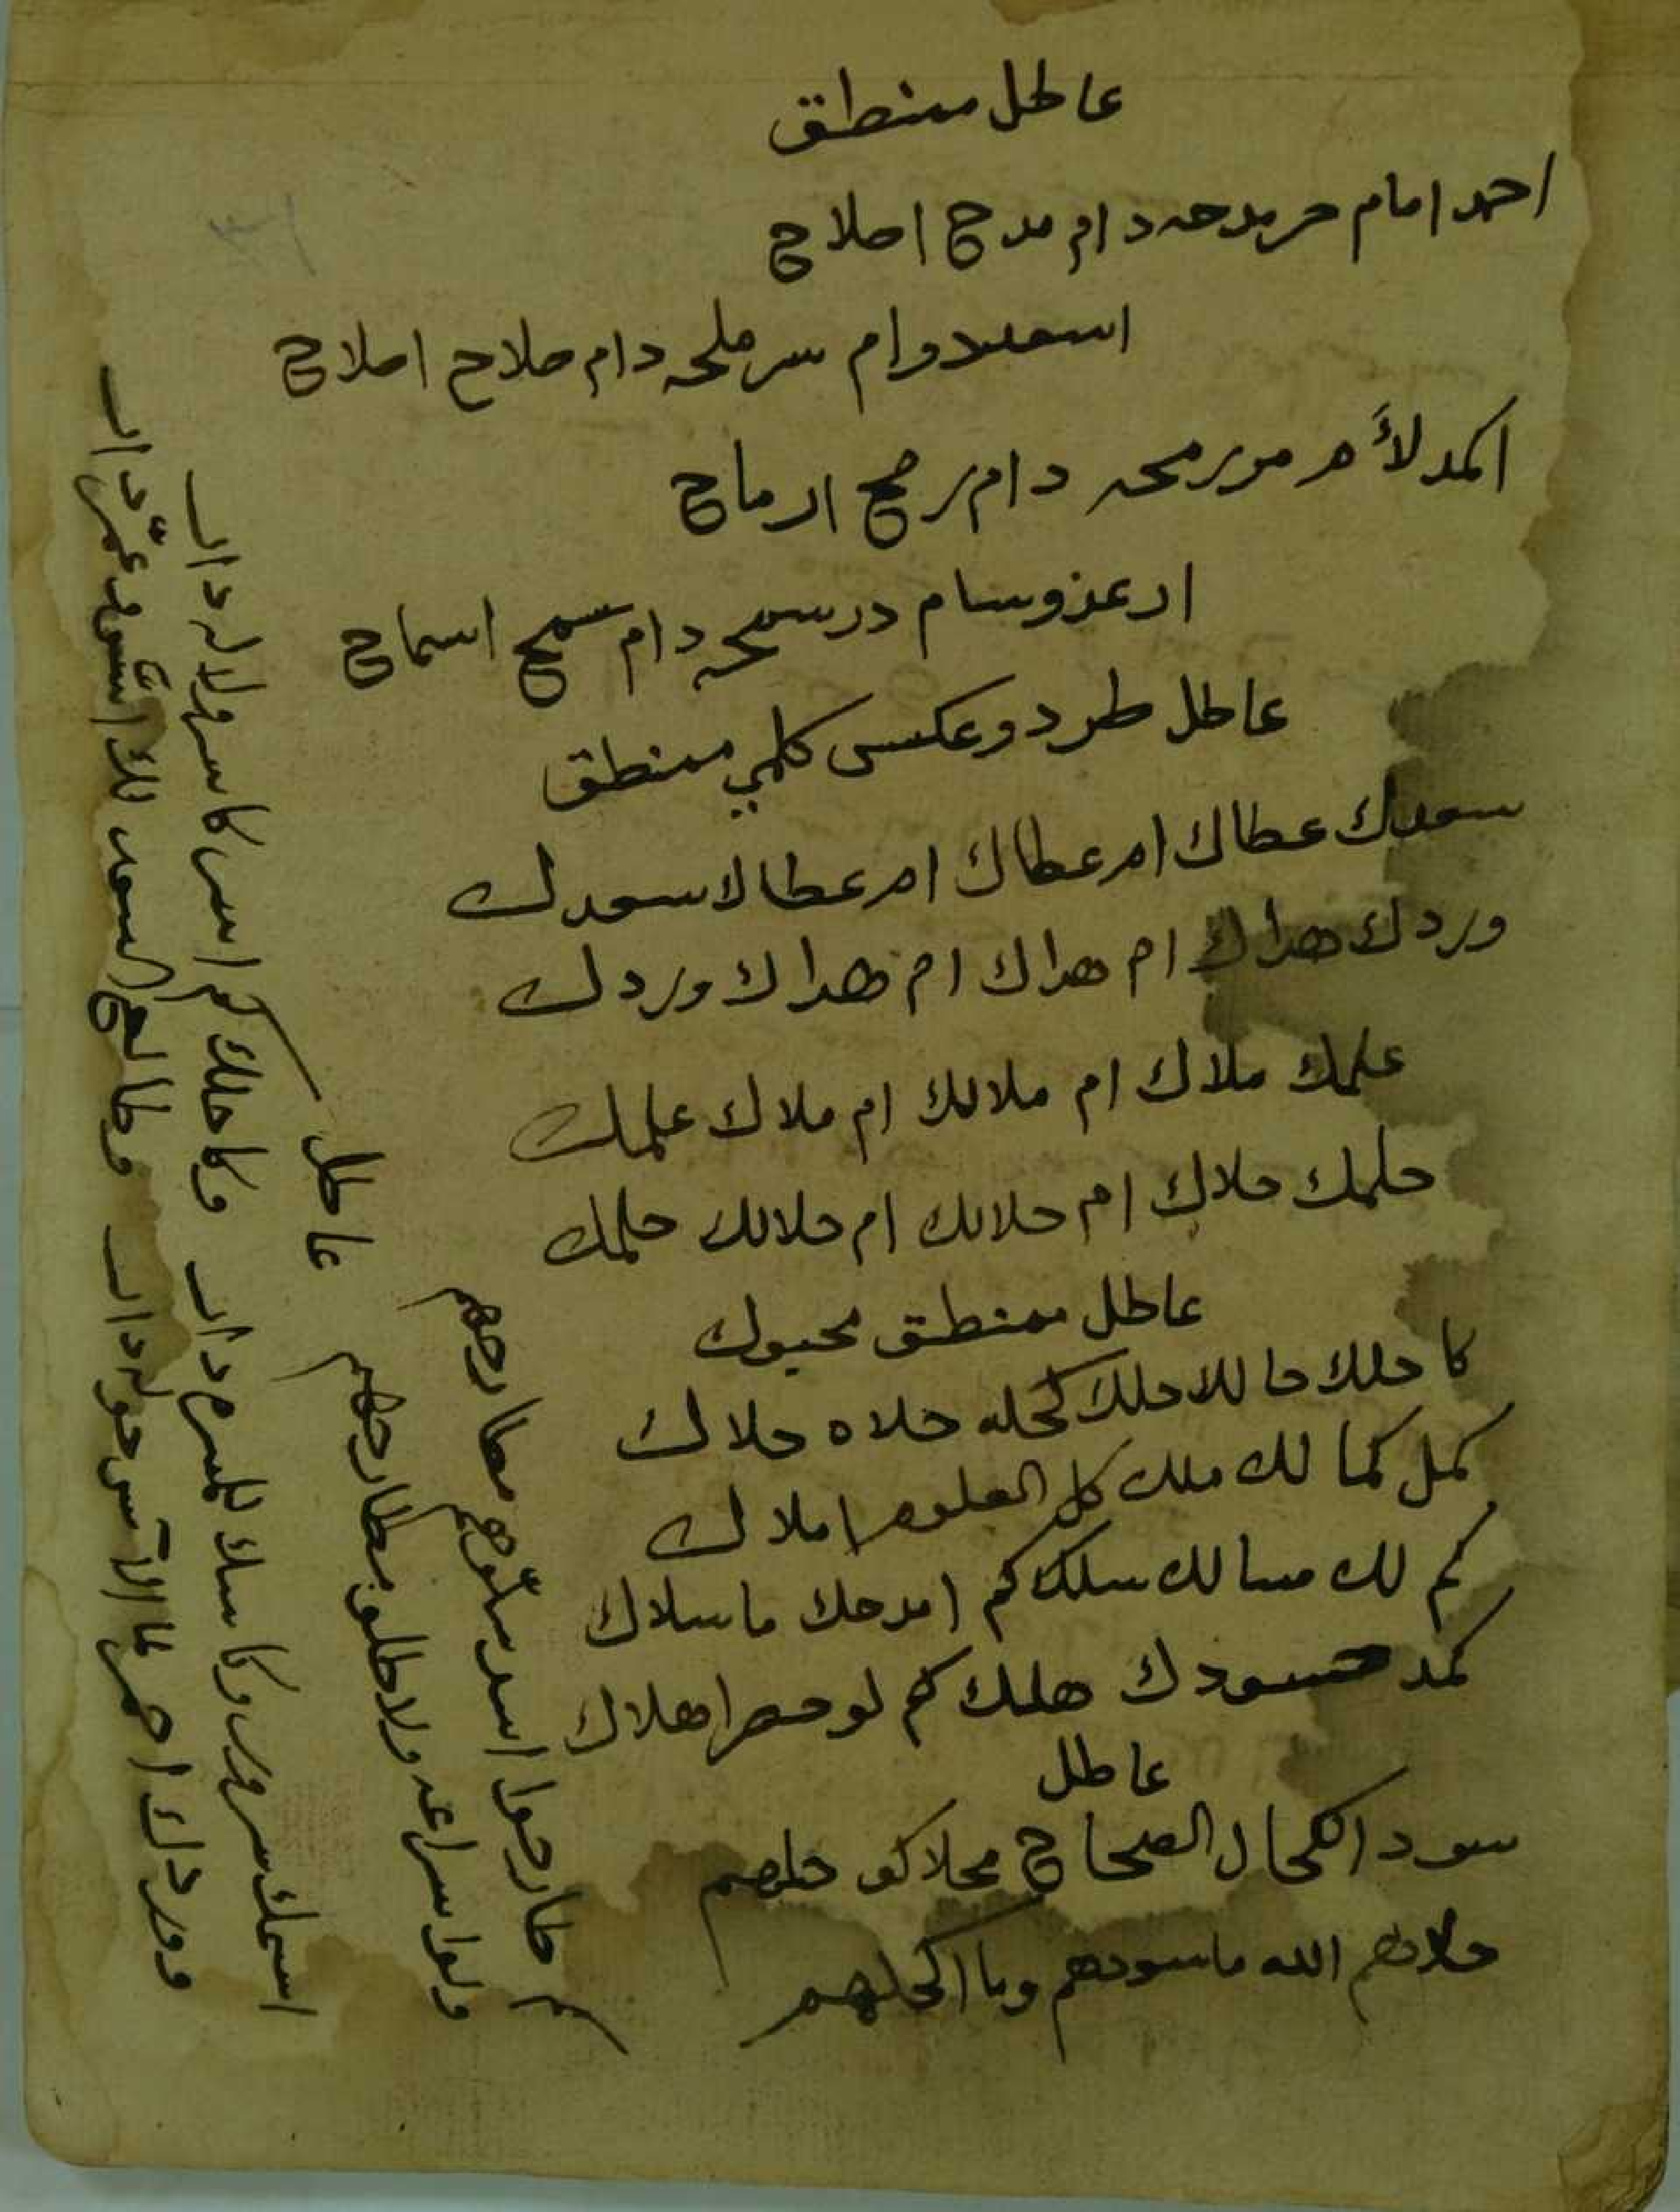 عاطل ممنطق
احمد امام حر مدحه دام مدح املاح
اسعد دوام سر ملحه دام ملاح املاح
اكمد لأم مور محه دام رمح ارماح
ارعد وسام در سمحه دام سمح اسماح
عاطل طرد وعكس كلمي ممنطق
سعدك عطاك ام عطاك ام عطاك سعدك
وردك هداك ام هداك ام هداك وردك
علمك ملاك ام ملاك ام ملاك علمك
حلمك حلاك ام حلاك ام حلاك حلمك
عاطل ممنطق محبوك
كاحلك حاللا حلك كحله حلاه حلاك
كمل كمالك ملك كل العلوم املاك
كم لك مسالك سلك كم امدحك ماسلاك
كمد حسودك هلك كم لو حصر اهلاك
عاطل
سود اكحال الصحاح محلاكو حلهم
حلاهم الله ماسودهم وما اكحلهم
عاطل
كم طارحوا اسد سلوهم مطارحهم
ولوا سراعه ولا طلو مطارحهم
اسمك سرور وكاسك للمسره دار
وكاحلك كم اسر كاسر ولا له دار
ووردك احمر عالآس حوله دار
وطالع السعد لك اسود عمر دار